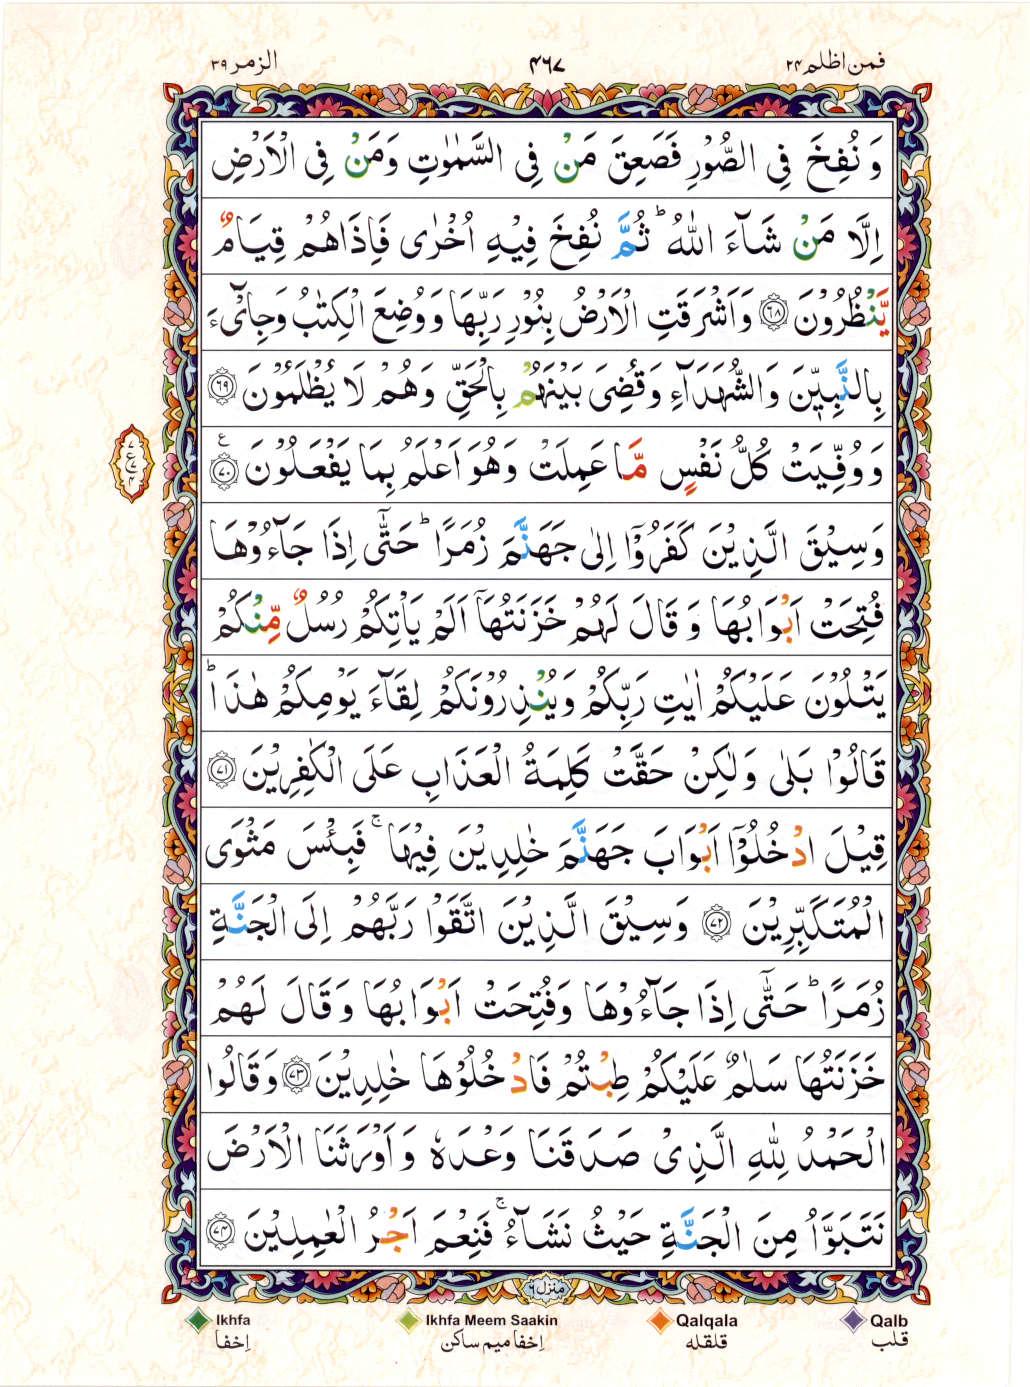 فمن اظلم ۲۴
۴۶۷
الزمر ۳۹
وَ نُفِخَ فِی الصُّوْرِ فَصَعِقَ مَنْ فِی السَّمٰوٰتِ وَمَنْ فِی الْاَرْضِ
اِلَّا مَنْ شَآءَ اللّٰهُ ؕ ثُمَّ نُفِخَ فِیْهِ اُخْرٰی فَاِذَاهُمْ قِیَامٌ
یَّنْظُرُوْنَ ﴿۶۸﴾ وَاَشْرَقَتِ الْاَرْضُ بِنُوْرِ رَبِّهَا وَوُضِعَ الْکِتٰبُ وَجِایْٓءَ
بِالنَّبِیّٖنَ وَالشُّهَدَآءِ وَقُضِیَ بَیْنَهُمْ بِالْحَقِّ وَهُمْ لَا یُظْلَمُوْنَ ﴿۶۹﴾
وَوُفِّیَتْ کُلُّ نَفْسٍ مَّا عَمِلَتْ وَهُوَ اَعْلَمُ بِمَا یَفْعَلُوْنَ ﴿۷۰﴾ ع
وَسِیْقَ الَّذِیْنَ کَفَرُوْۤا اِلٰی جَهَنَّمَ زُمَرًا ؕ حَتّٰۤی اِذَا جَآءُوْهَا
فُتِحَتْ اَبْوَابُهَا وَ قَالَ لَهُمْ خَزَنَتُهَاۤ اَلَمْ یَاْتِکُمْ رُسُلٌ مِّنْکُمْ
یَتْلُوْنَ عَلَیْکُمْ اٰیٰتِ رَبِّکُمْ وَیُنْذِرُوْنَکُمْ لِقَآءَ یَوْمِکُمْ هٰذَا ؕ
قَالُوْا بَلٰی وَلٰکِنْ حَقَّتْ کَلِمَةُ الْعَذَابِ عَلَی الْکٰفِرِیْنَ ﴿۷۱﴾
قِیْلَ ادْخُلُوْۤا اَبْوَابَ جَهَنَّمَ خٰلِدِیْنَ فِیْهَا ۚ فَبِئْسَ مَثْوَی
الْمُتَکَبِّرِیْنَ ﴿۷۲﴾ وَسِیْقَ الَّذِیْنَ اتَّقَوْا رَبَّهُمْ اِلَی الْجَنَّةِ
زُمَرًا ؕ حَتّٰۤی اِذَا جَآءُوْهَا وَفُتِحَتْ اَبْوَابُهَا وَقَالَ لَهُمْ
خَزَنَتُهَا سَلٰمٌ عَلَیْکُمْ طِبْتُمْ فَادْخُلُوْهَا خٰلِدِیْنَ ﴿۷۳﴾ وَقَالُوا
الْحَمْدُ لِلّٰهِ الَّذِیْ صَدَقَنَا وَعْدَهٗ وَاَوْرَثَنَا الْاَرْضَ
نَتَبَوَّاُ مِنَ الْجَنَّةِ حَیْثُ نَشَآءُ ۚ فَنِعْمَ اَجْرُ الْعٰمِلِیْنَ ﴿۷۴﴾
منزل ۶
Ikhfa Ikhfa Meem Saakin Qalqala Qalb
اِخفا اِخفا میم ساکن قلقله قلب